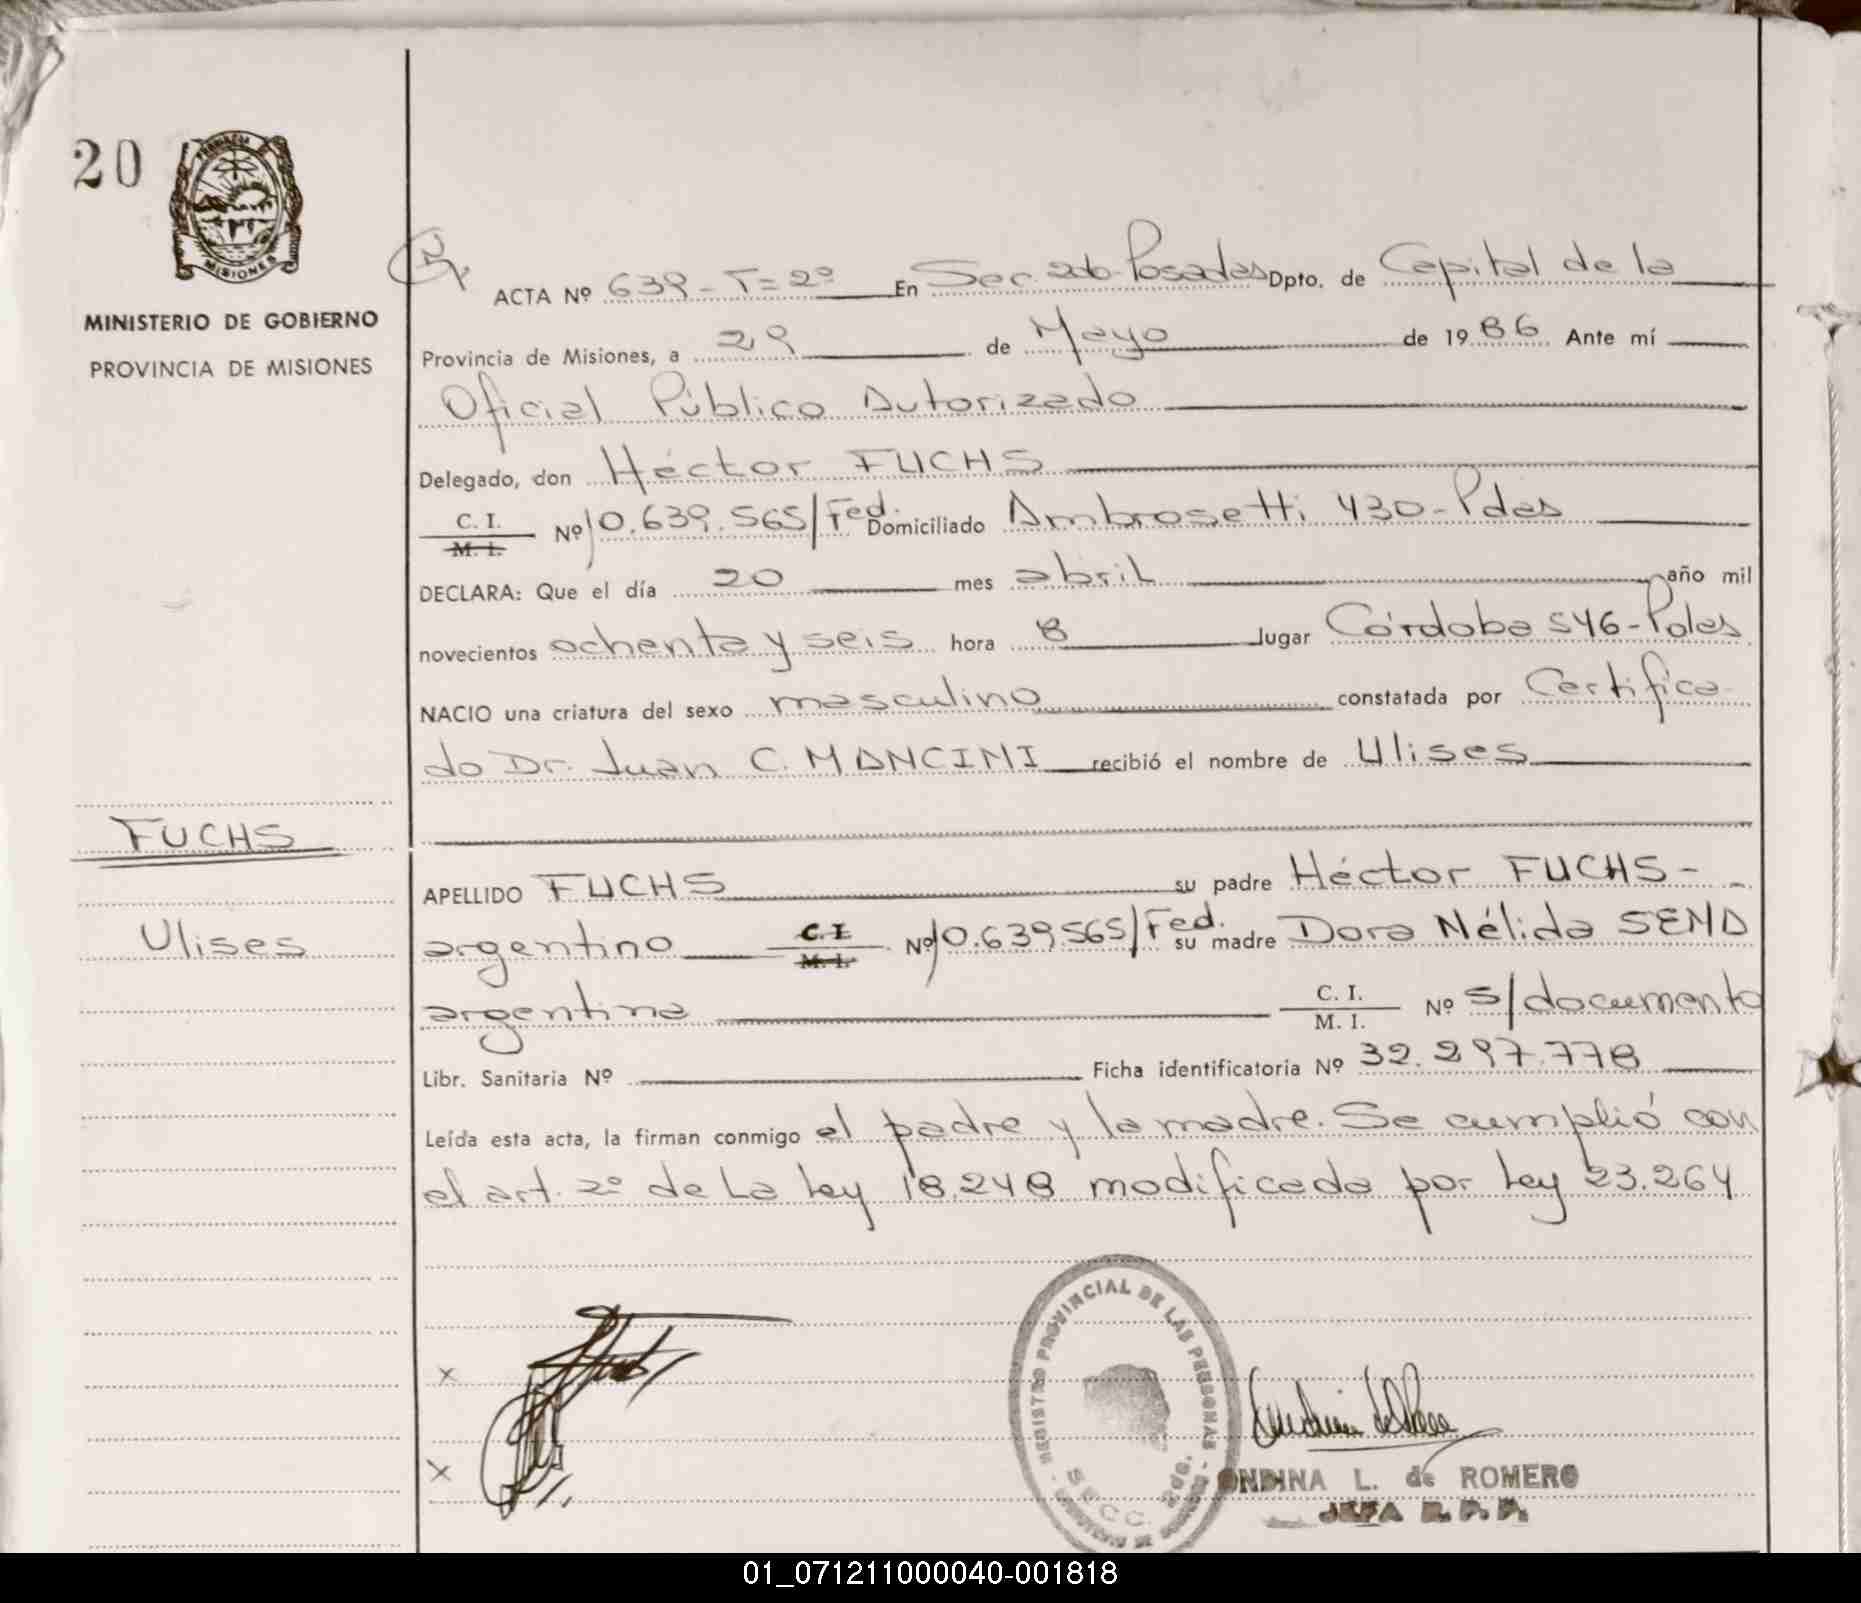 20
MISIONES
MINISTERIO DE GOBIERNO
PROVINCIA DE MISIONES
ACTA Nº 639 - T=2º En Sec. 2da Posadas Dpto. de Capital de la
Provincia de Misiones, a 29 de Mayo de 1986 Ante mí
Oficial Público Autorizado
Delegado, don Héctor FUCHS
C. I. Nº 10.639.565/Fed. Domiciliado Ambrosetti 430-Pdas
M. I.
DECLARA: Que el día 20 mes abril año mil
novecientos ochenta y seis hora 8 lugar Córdoba 546-Pdas
NACIO una criatura del sexo masculino constatada por Certifica-
do Dr. Juan C. MANCINI recibió el nombre de Ulises
FUCHS
APELLIDO FUCHS su padre Héctor FUCHS-
Ulises
argentino C.I Nº 10.639.565/Fed. su madre Dora Nélida SENA
M. I.
argentina C. I. Nº S/documento
M. I.
Libr. Sanitaria Nº Ficha identificatoria Nº 32.297.778
Leída esta acta, la firman conmigo el padre y la madre. Se cumplió con
el art. 2º de la Ley 18.248 modificada por Ley 23.264
REGISTRO PROVINCIAL DE LAS PERSONAS
SECC. 2da.
x
x
ONDINA L. de ROMERO
JEFA R. P. P.
01_071211000040-001818